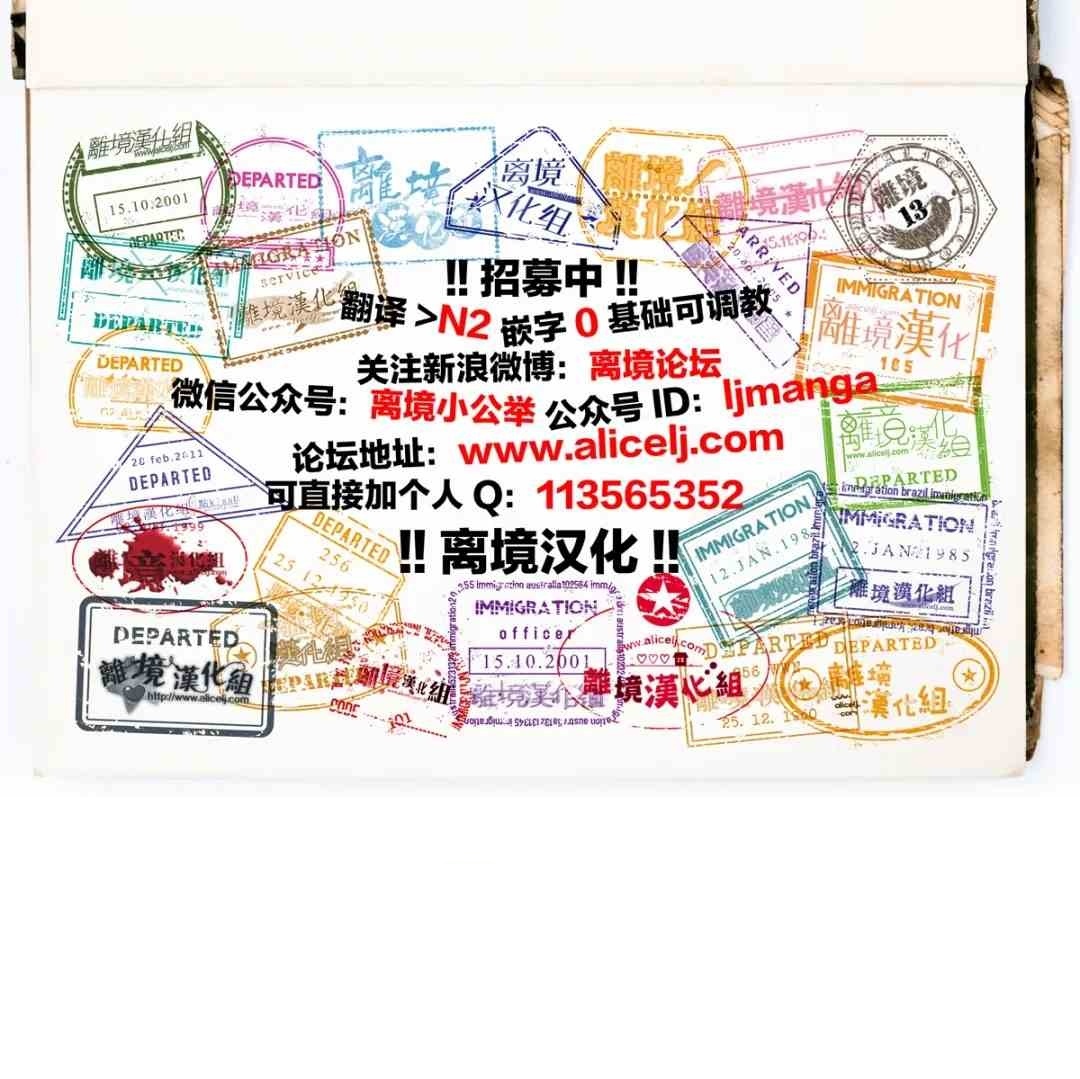 離境漢化組
www.alicelj.com
15.10.2001
DEPARTED
DEPARTED
離境漢化組
離境
离境
汉化组
離境
漢化組
離境漢化組
離境
13
ARRIVED
離境漢化組
DEPARTED
IMMIGRATION
service
離境漢化組
IMMIGRATION
離境漢化
165
!! 招募中 !!
翻译 >N2 嵌字 0 基础可调教
关注新浪微博：离境论坛
微信公众号：离境小公举 公众号 ID：ljmanga
论坛地址：www.alicelj.com
可直接加个人 Q：113565352
!! 离境汉化 !!
DEPARTED
28 feb.2011
DEPARTED
離境漢化組
離境漢化組
www.alicelj.com
DEPARTED
離境漢化組
DEPARTED
256
25.12.1960
漢化組
DEPARTED
離境漢化組
http://www.alicelj.com
離境漢化組
101
IMMIGRATION
officer
15.10.2001
離境漢化組
www.alicelj.com
離境漢化組
IMMIGRATION
12.JAN.198
immigration brazil immigration
IMMIGRATION
12.JAN.1985
離境漢化組
DEPARTED
25.12.1960
DEPARTED
離境
漢化組